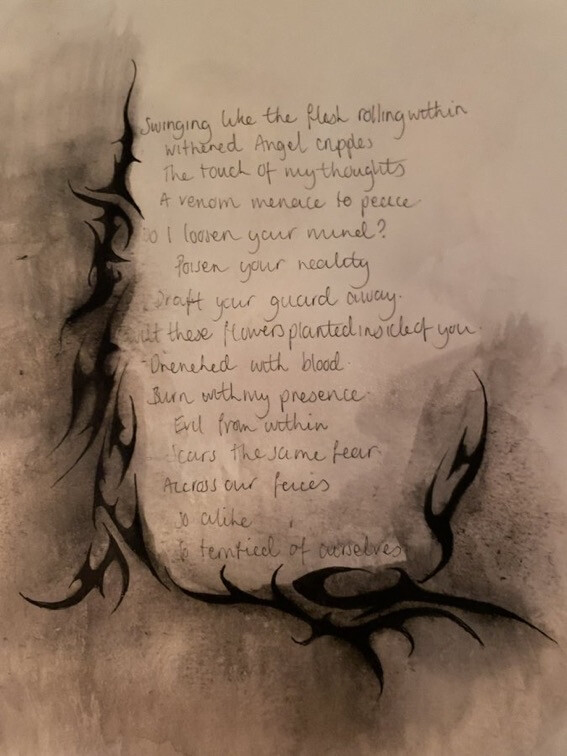 Swinging like the flesh rolling within
withered Angel cripples
The touch of my thoughts
A venom menace to peace
Do I loosen your mind?
Poisen your reality
Draft your guard away.
these flowers planted inside of you.
Drenched with blood.
Burn with my presence.
Evil from within
Scars the same fear.
Accross our faces
So alike
So terrified of ourselves